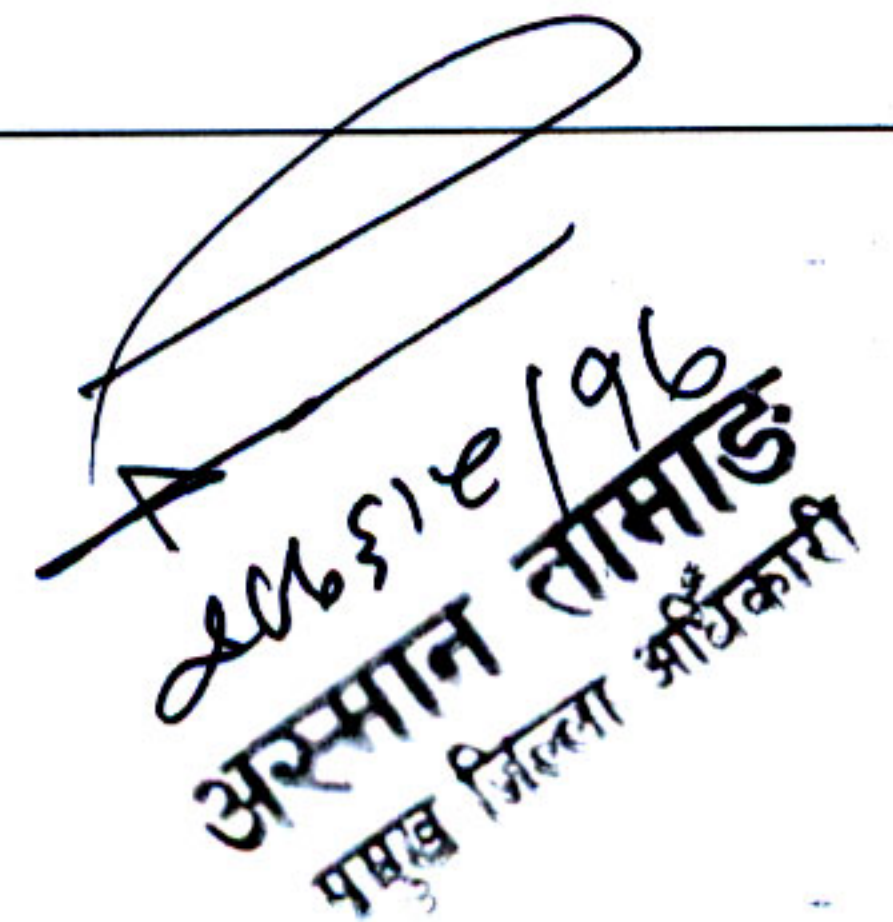 २०७६।९/१७
अस्मान तामाङ
प्रमुख जिल्ला अधिकारी